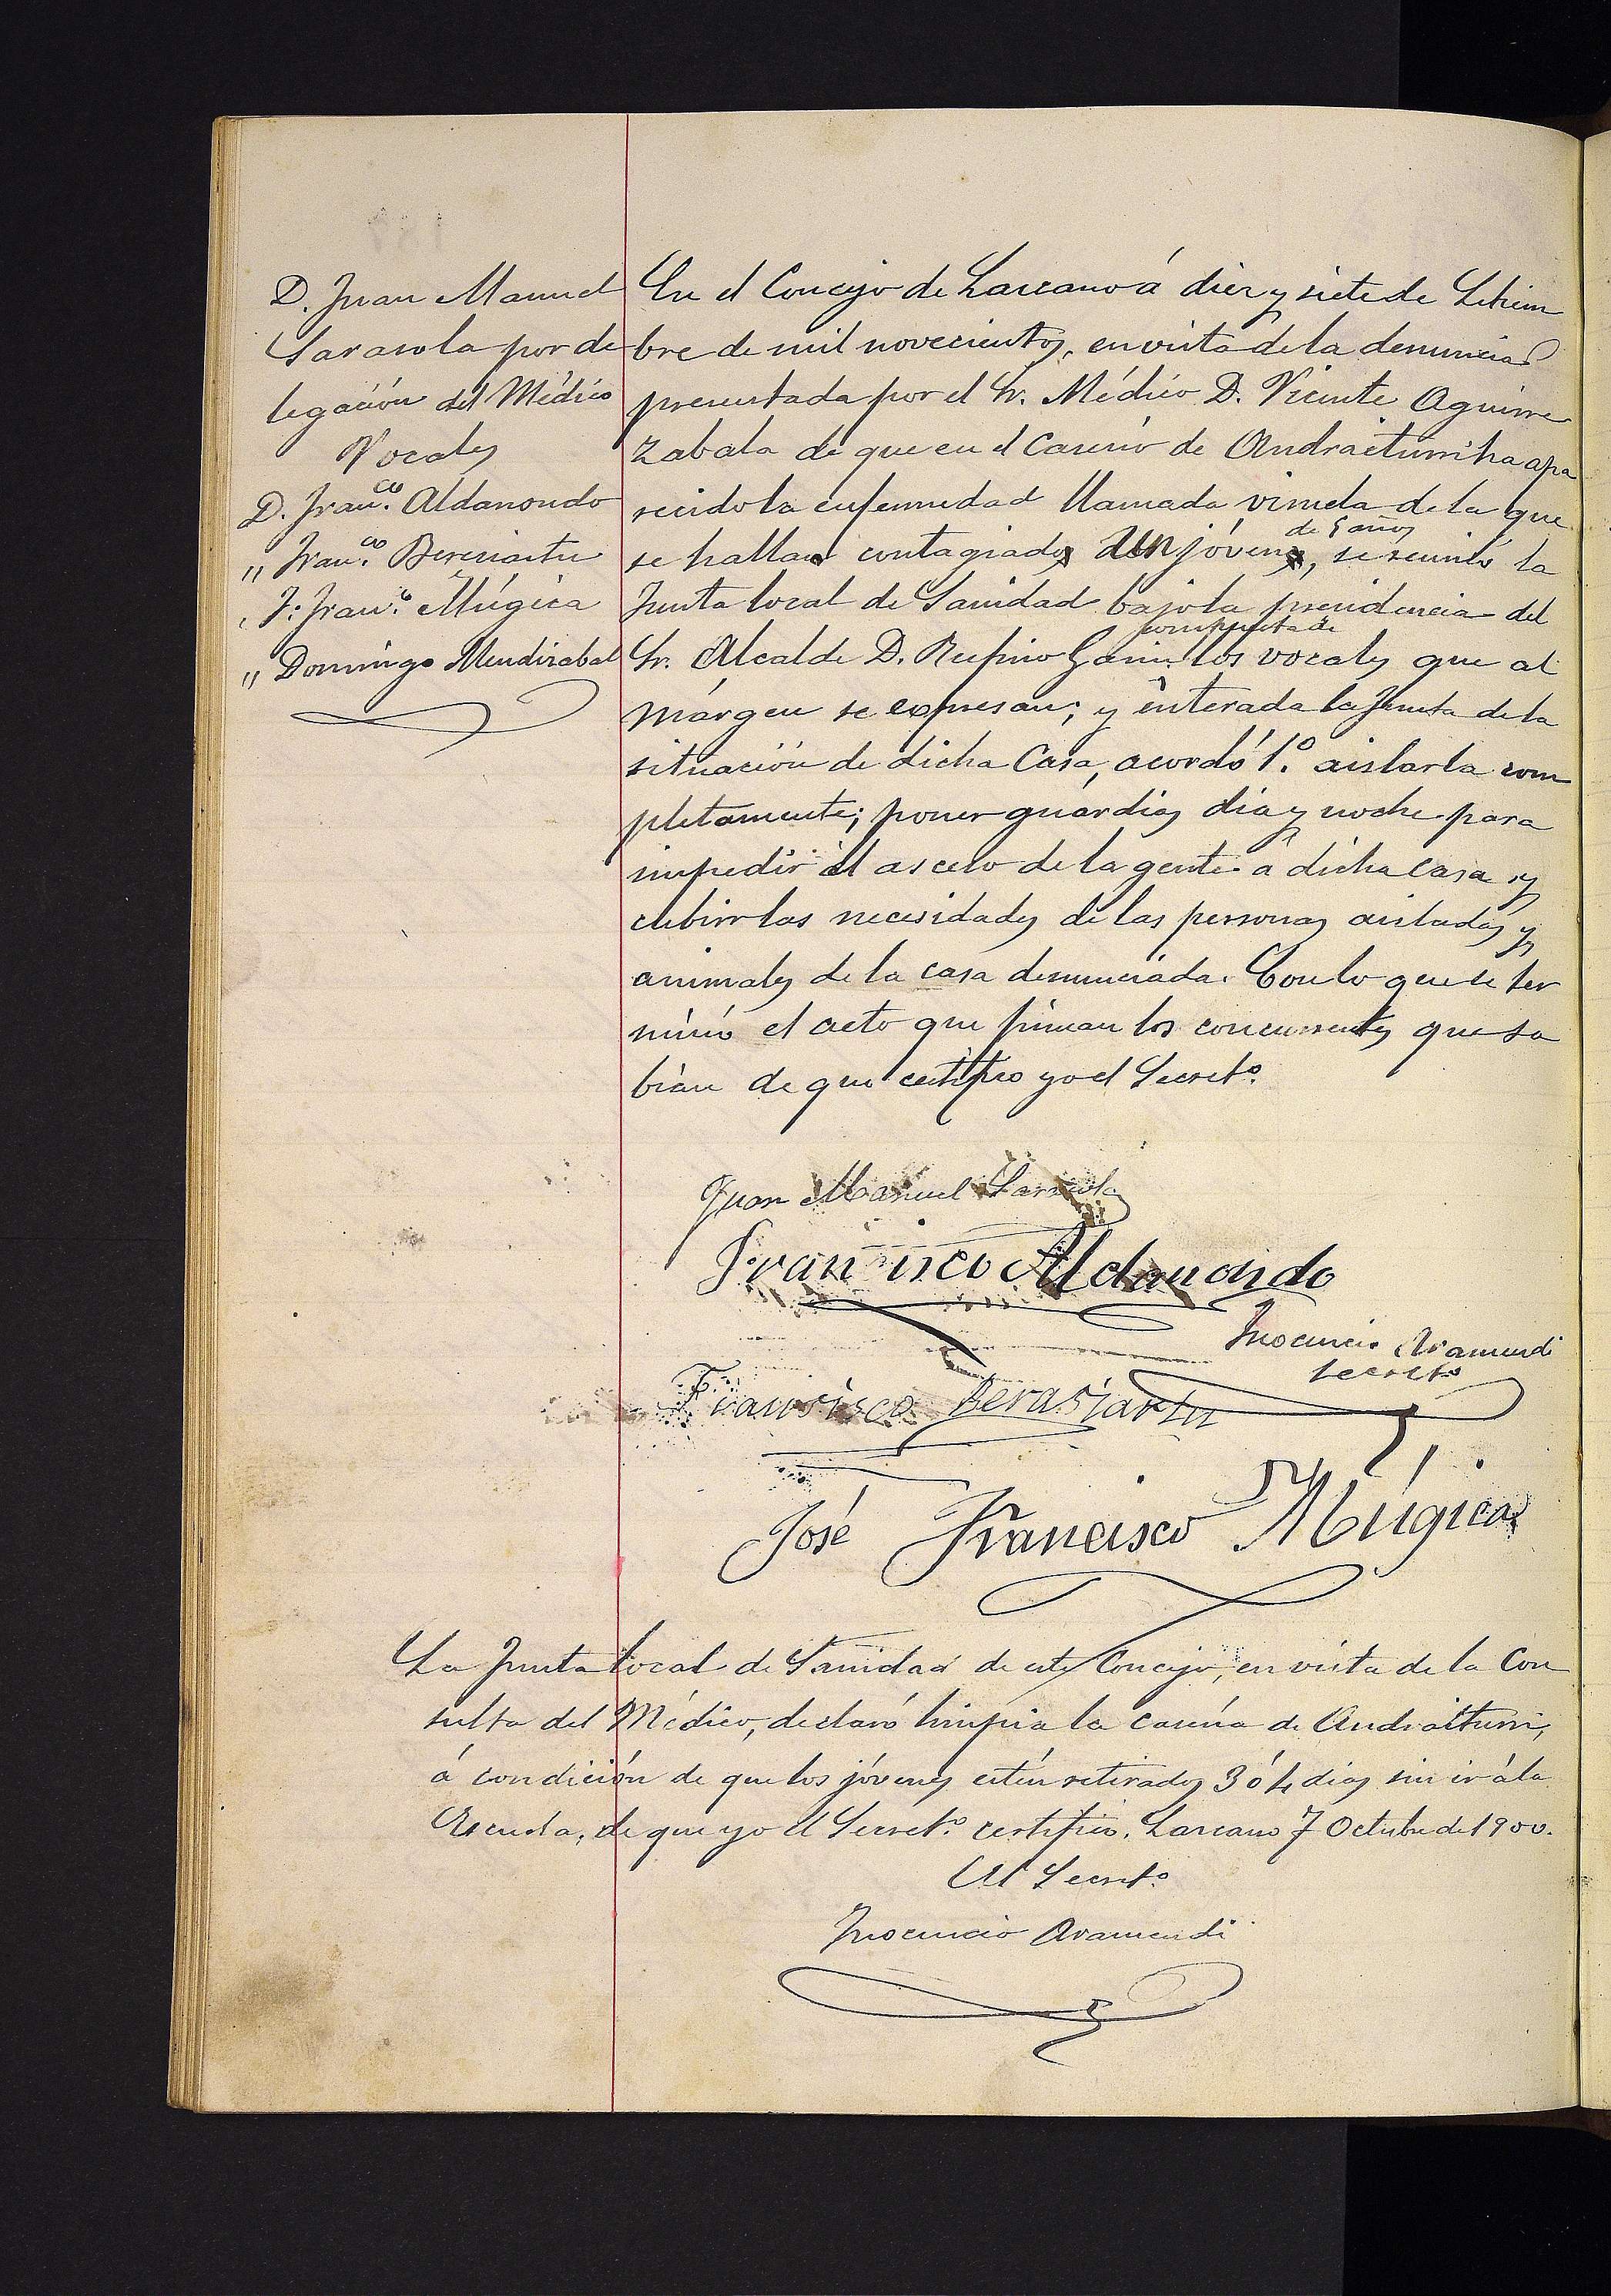 D. Juan Manuel
Sarasola por de
legación del Médico
Vocales
D. Franco. Aldanondo
" Franco. Berasiartu
" J. Franco. Múgica
" Domingo Mendizabal
En el Concejo de Lazcano á diez y siete de Setiem
bre de mil novecientos, en vista de la denuncia
presentada por el Sr. Médico D. Vicente Aguirre
zabala de que en el Caserío de Andraiturri ha apa
recido la enfermedad llamada viruela de la que
de 5 años
se halla contagiado un jóven, se reunió la
Junta local de Sanidad bajo la presidencia del
compuesta de
Sr. Alcalde D. Rufino Garin los vocales que al
márgen se expresan; y enterada la Junta de la
situación de dicha Casa, acordó 1.º aislarla com
pletamente; poner guardias dia y noche para
impedir el asceso de la gente á dicha casa y
cubrir las necesidades de las personas aisladas y
animales de la casa denunciada. Con lo que se ter
minó el acto que firman los concurrentes que sa
bian de que certifico yo el Secreto.
Juan Manuel Sarasola
Francisco Aldanondo
Inocencio Aramendi
Secreto
Francisco Berasiartu
José Francisco Múgica
La Junta local de Sanidad de este Concejo, en vista de la Con
sulta del Médico, declaró limpia la caseria de Andraiturri,
á condición de que los jóvenes estén retirados 3 ó 4 dias sin ir á la
Escuela, de que yo el Secreto. certifico. Lazcano 7 Octubre de 1900.
El Secreto
Inocencio Aramendi